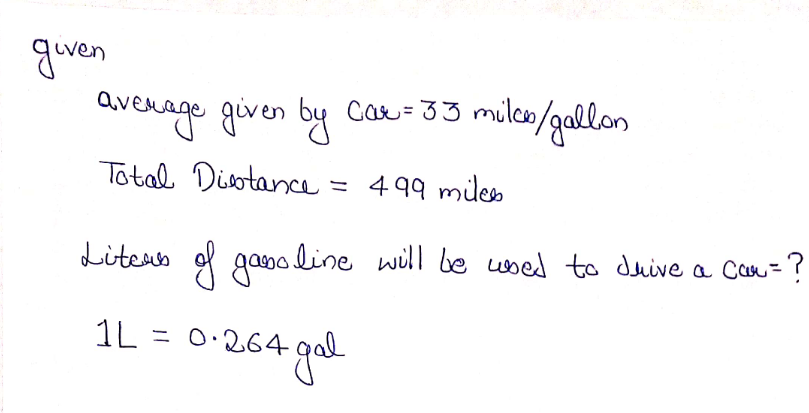 given
average given by car = 33 miles/gallon
Total Distance = 499 miles
Liters of gasoline will be used to drive a car = ?
1L = 0.264 gal